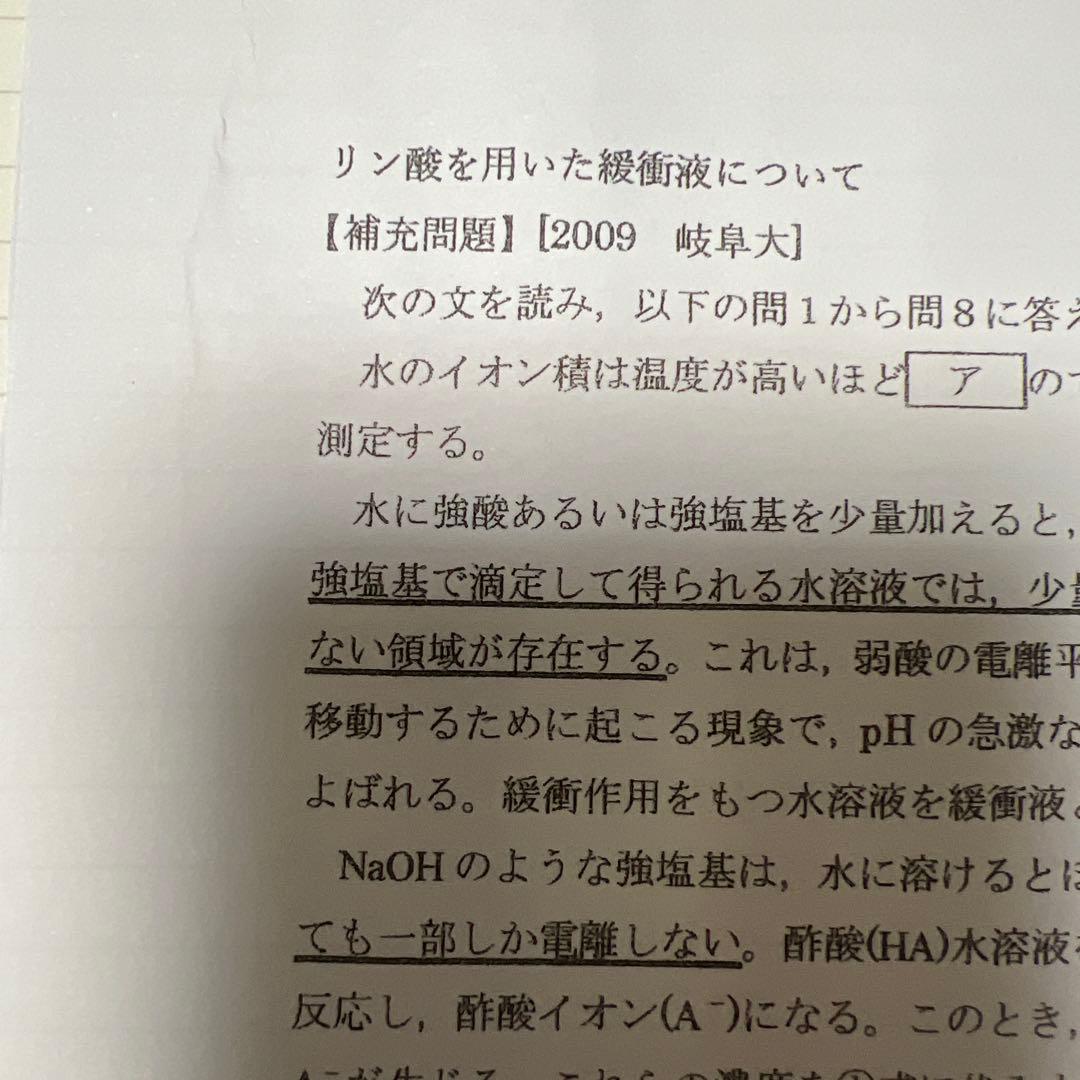 リン酸を用いた緩衝液について
【補充問題】[2009　岐阜大]
次の文を読み，以下の問1から問8に答え
水のイオン積は温度が高いほど ア の
測定する。
水に強酸あるいは強塩基を少量加えると，
強塩基で滴定して得られる水溶液では，少量
ない領域が存在する。これは，弱酸の電離平
移動するために起こる現象で，pHの急激な
よばれる。緩衝作用をもつ水溶液を緩衝液
NaOHのような強塩基は，水に溶けるとほ
ても一部しか電離しない。酢酸(HA)水溶液
反応し，酢酸イオン(A⁻)になる。このとき，